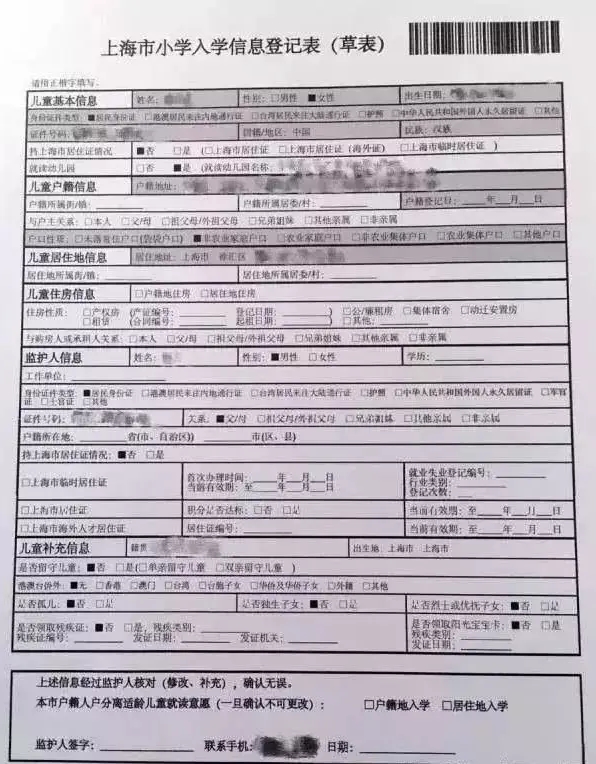 上海市小学入学信息登记表（草表）
请用正楷字填写。
儿童基本信息 姓名： 性别：□男性 ■女性 出生日期：
身份证件类型：■居民身份证 □港澳居民来往内地通行证 □台湾居民来往大陆通行证 □护照 □中华人民共和国外国人永久居留证 □其他
证件号码： 国籍/地区：中国 民族：汉族
持上海市居住证情况 ■否 □是（□上海市居住证 □上海市居住证（海外证） □上海市临时居住证 ）
就读幼儿园 □否 ■是（就读幼儿园名称：
儿童户籍信息 户籍地址：
户籍所属街/镇：________ 户籍所属居委/村：________ 户籍登记日：____年__月__日
与户主关系：□本人 □父/母 □祖父母/外祖父母 □兄弟姐妹 □其他亲属 □非亲属
户口性质：□未落常住户口(袋袋户口) ■非农业家庭户口 □农业家庭户口 □非农业集体户口 □农业集体户口 □其他户口
儿童居住地信息 居住地址：上海市 徐汇区
居住地所属街/镇：________ 居住地所属居委/村：________
儿童住房信息 □户籍地住房 □居住地住房
住房性质：□产权房 (产证编号：________ 登记日期：________) □公/廉租房 □集体宿舍 □动迁安置房
□租赁 (合同编号：________ 起租日期：________) □其他：________
与购房人或承租人关系：□本人 □父/母 □祖父母/外祖父母 □兄弟姐妹 □其他亲属 □非亲属
监护人信息 姓名： 性别：■男性 □女性 学历：________
工作单位：________
身份证件类型：■居民身份证 □港澳居民来往内地通行证 □台湾居民来往大陆通行证 □护照 □中华人民共和国外国人永久居留证 □军官
证 □士官证 □其他
证件号码： 关系：■父/母 □祖父母/外祖父母 □兄弟姐妹 □其他亲属 □非亲属
户籍所在地：________省(市、自治区)) ________市(区、县)
持上海市居住证情况：■否 □是
□上海市临时居住证 首次办理时间：____年__月__日 就业失业登记编号：________
当前有效期：至____年__月__日 行业类别：________
登记次数：__
□上海市居住证 积分是否达标：□否 □是 当前有效期：至____年__月__日
□上海市海外人才居住证 居住证编号：________ 当前有效期：至____年__月__日
儿童补充信息 籍贯 出生地 上海市 上海市
是否留守儿童：■否 □是(□单亲留守儿童 □双亲留守儿童 )
港澳台侨外：■无 □香港 □澳门 □台湾 □台胞子女 □华侨及华侨子女 □外籍 □其他
是否孤儿：■否 □是 是否独生子女：■否 □是 是否烈士或优抚子女：■否 □是
是否领取残疾证：■否 □是，残疾类别：________ 是否领取阳光宝宝卡：■否 □是
残疾证编号：________ 发证日期：________ 发证机关：________ 残疾类别：________
发证日期：________
上述信息经过监护人核对（修改、补充），确认无误。
本市户籍人户分离适龄儿童就读意愿（一旦确认不可更改）： □户籍地入学 □居住地入学
监护人签字：________ 联系手机： 日期：________